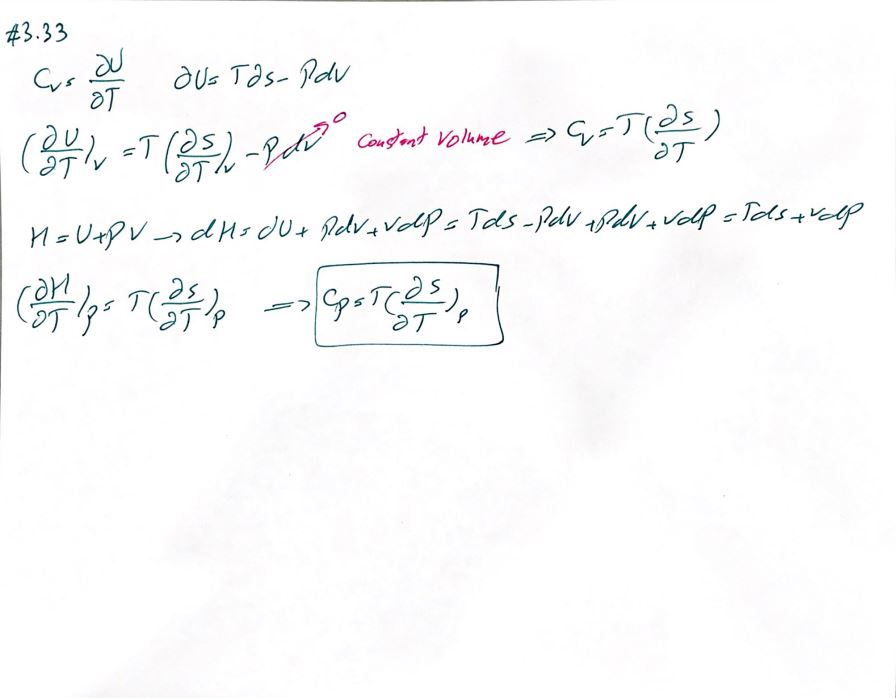 #3.33
Cv = ∂U/∂T ∂U = T∂s - Pdv
(∂U/∂T)v = T(∂s/∂T)v - Pdv → 0 Constant Volume ⇒ Cv = T(∂s/∂T)
H = U + PV → dH = dU + Pdv + vdP = Tds - Pdv + Pdv + vdP = Tds + vdP
(∂H/∂T)p = T(∂s/∂T)p ⇒ Cp = T(∂s/∂T)p